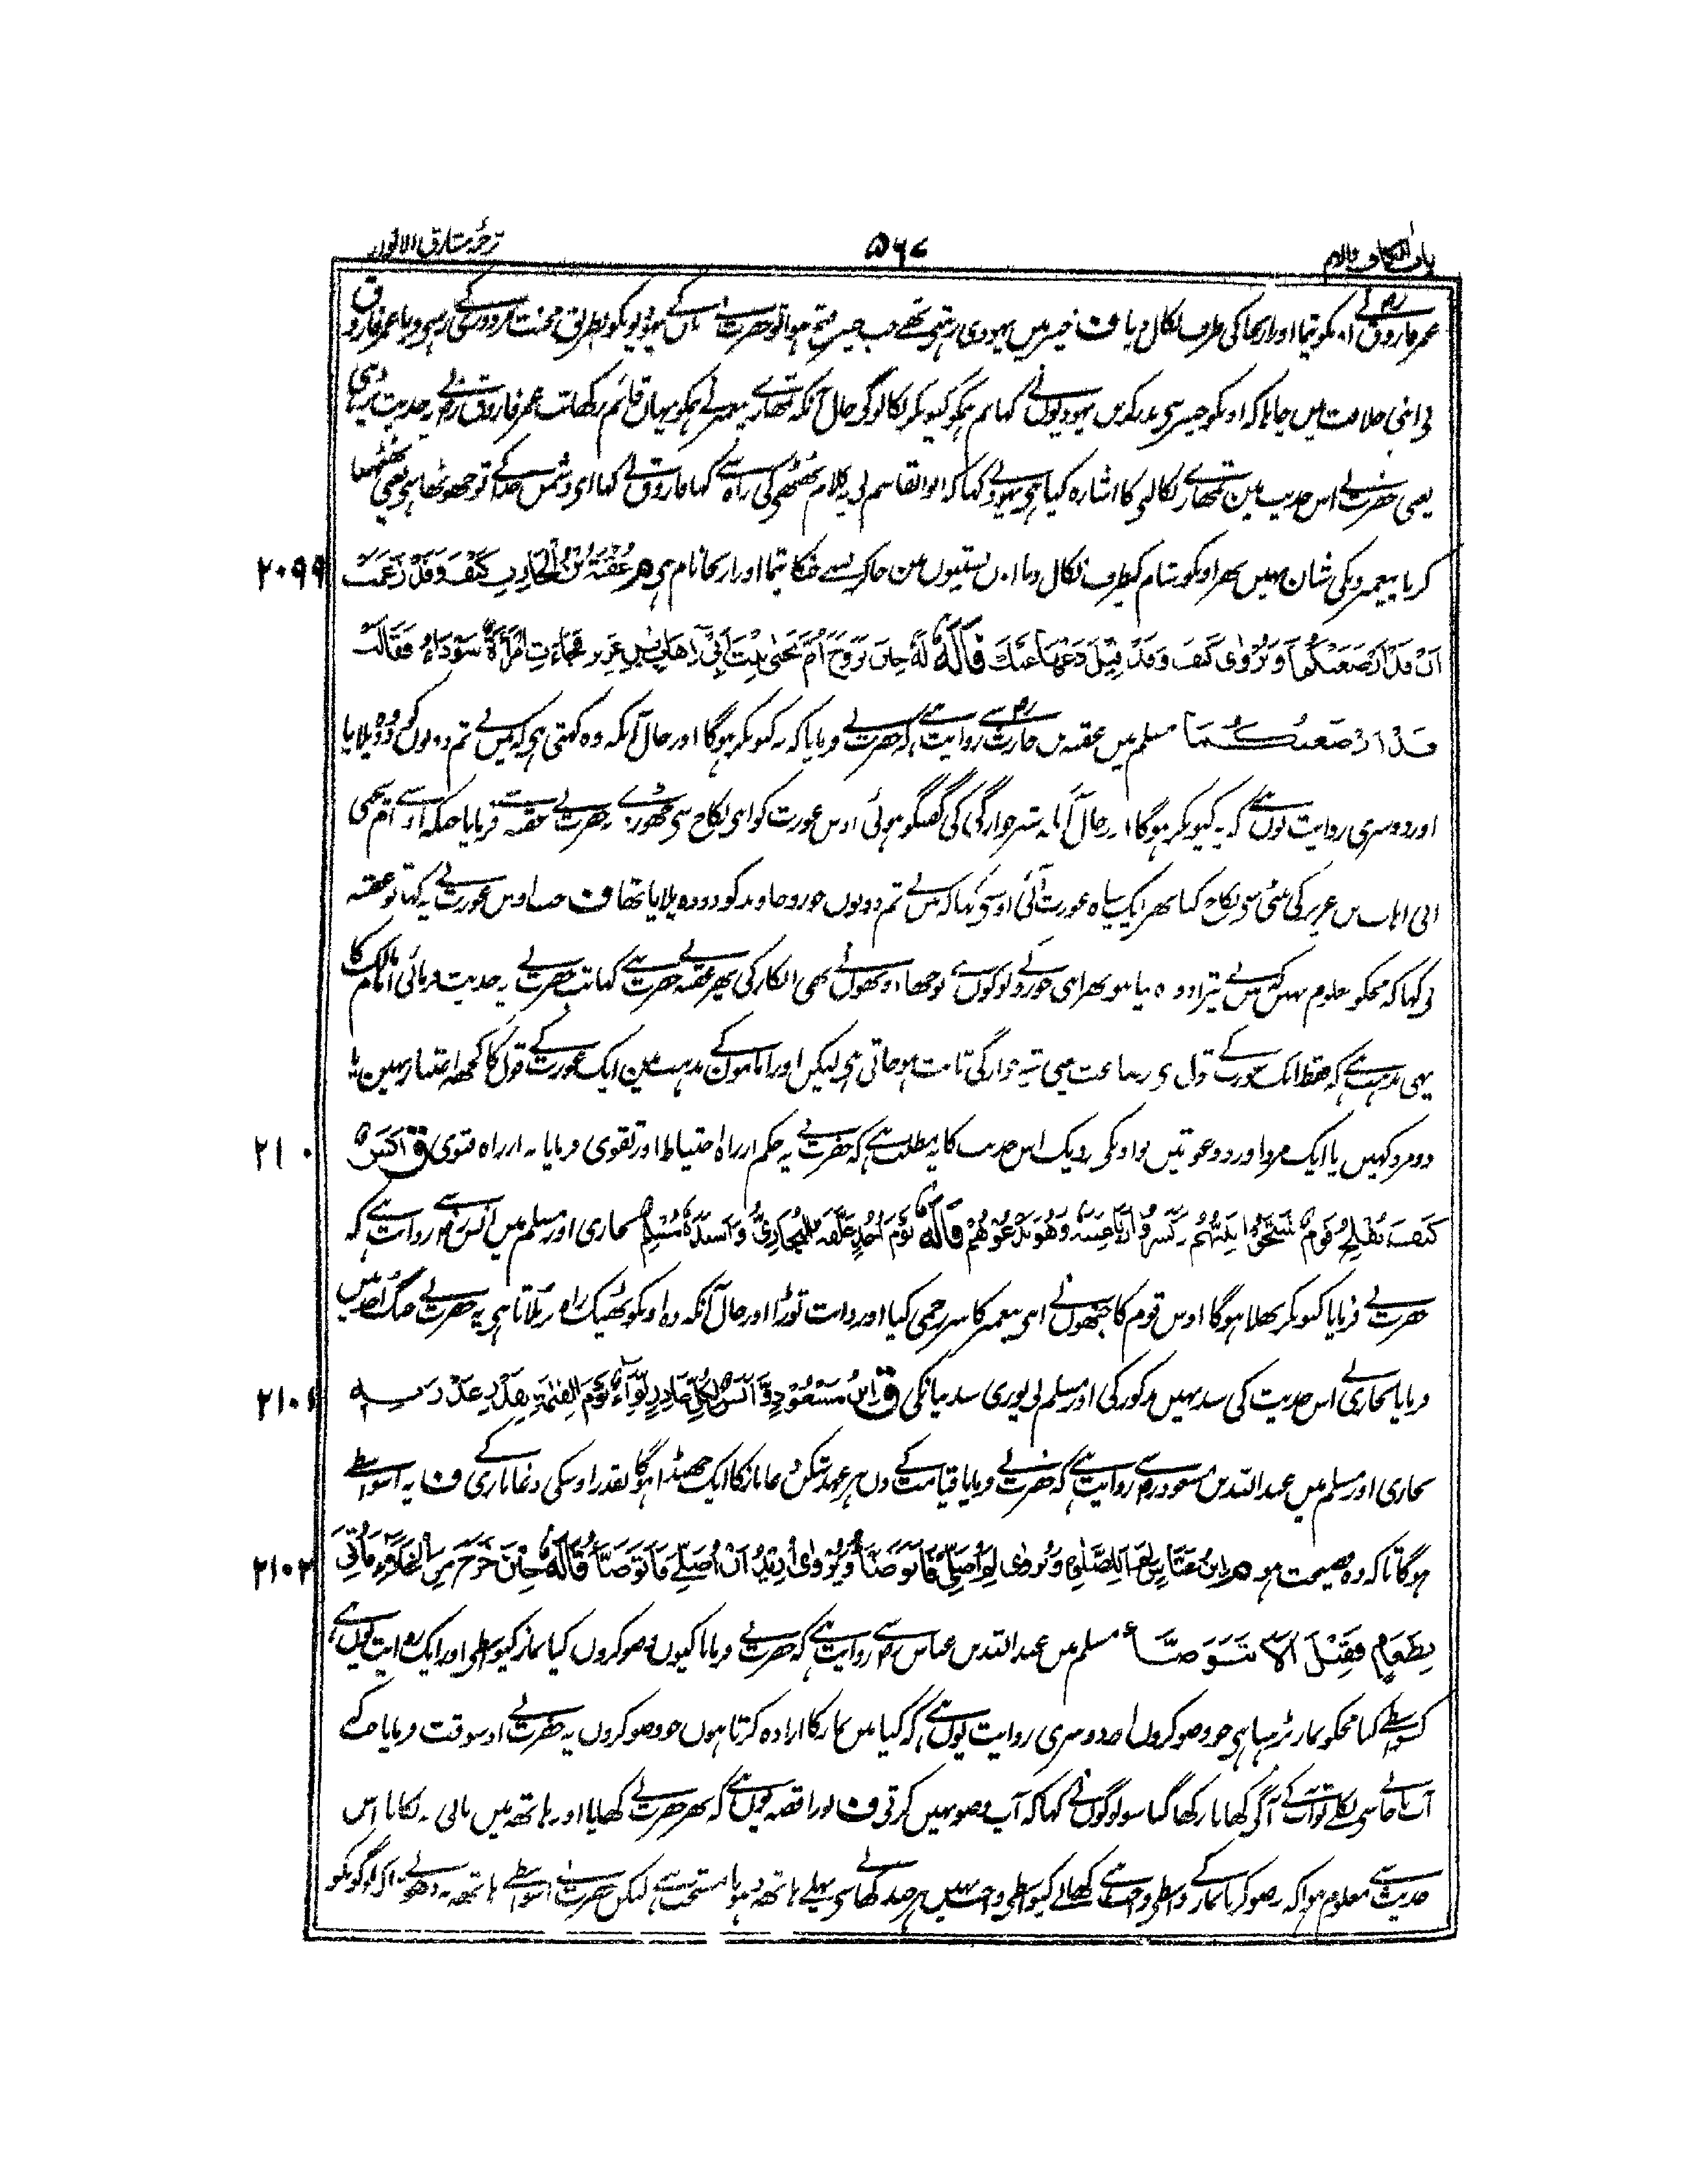 ترجمۂ مشارق الانوار
۵۶۷
باب الکاف واللام
عمر فاروق رض نے اونکو تیما اور اریحا کی طرف نکال دیا ف خیبر میں یہودی رہتے تھے جب خیبر فتح ہوا تو حضرت نے وہاں کے یہودیونکو بطریق محنت مزدوری کی رہنے دیا عمر فاروق
نے اپنی خلافت میں چاہا کہ اونکو خیبر سے بدر کریں یہودیوں نے کہا تم ہمکو کیونکر نکالوگے حال آنکہ تمہارے پیغمبر نے ہمکو یہاں قائم رکھا تب عمر فاروق رض نے یہ حدیث پڑہی
یعنی حضرت نے اس حدیث میں تمھارے نکالنے کا اشارہ کیا ہے یہود نے کہا کہ ابو القاسم نے یہ کلام ٹھٹھے کی راہ سے کہا فاروق نے کہا ای دشمن خدا کے تو جھوٹھا ہے یعنی ٹھٹھا
کرنا پیغمبرونکی شان نہیں پھر اونکو شام کیطرف نکال دیا اون بستیوں میں جاکر بسے جنکا تیما اور اریحا نام ہی م عُقْبَةُ بْنُ الْحَارِثِ كَيْفَ وَقَدْ زَعَمَتْ
۲۰۹۹
اَنْ قَدْ اَرْضَعَتْكُمَا وَيُرْوٰى كَيْفَ وَقَدْ قِيْلَ دَعْهَا عَنْكَ قَالَهٗ لَهٗ حِيْنَ تَزَوَّجَ اُمَّ يَحْيٰى بِنْتَ اَبِيْ اِهَابِ بْنِ عَزِيْزٍ فَجَاءَتِ امْرَأَةٌ سَوْدَاءُ فَقَالَتْ
قَدْ اَرْضَعْتُكُمَا مسلم میں عقبہ بن حارث رض سے روایت ہے کہ حضرت نے فرمایا کہ یہ کیونکر ہوگا اور حال آنکہ وہ کہتی ہی کہ میں نے تم دونوں کو دودہ پلایا
اور دوسری روایت یوں ہے کہ یہ کیونکر ہوگا اور حال آنکہ شیر خوارگی کی گفتگو ہوئی اوس عورت کو اپنی نکاح سے چھوڑ دے یہ حضرت نے عقبہ سے فرمایا جبکہ اوسنے ام یحیی
ابی اہاب بن عزیز کی بیٹی سے نکاح کیا پھر ایک سیاہ عورت آئی اوسنے کہا کہ میں نے تم دونوں جورو خاوند کو دودہ پلایا تھا ف جب اوس عورت نے یہ کہا تو عقبہ
نے کہا کہ مجکو معلوم نہیں کہ میں نے تیرا دودہ پیا ہو پھر اپنی جورو کے لوگوں سے پوچھا اونھوں نے بھی انکار کی پھر عقبہ نے حضرت سے کہا تب حضرت نے یہ حدیث فرمائی امام مالک کا
یہی مذہب ہے کہ فقط ایک عورت کے قول سے رضاعت یعنی شیر خوارگی ثابت ہو جاتی ہی لیکن اور اماموں کے مذہب میں ایک عورت کے قول کا کچھ اعتبار نہیں یا
دو مرد کہیں یا ایک مرد اور دو عورتیں تو اونکی نزدیک اس حدیث کا یہ مطلب ہے کہ حضرت نے یہ حکم از راہ احتیاط اور تقوی فرمایا نہ از راہ فتوی ق اَنَسٌ رض
۲۱۰۰
كَيْفَ يُفْلِحُ قَوْمٌ شَجُّوْا نَبِيَّهُمْ وَكَسَرُوْا رَبَاعِيَتَهٗ وَهُوَ يَدْعُوْهُمْ قَالَهٗ يَوْمَ اُحُدٍ عَلَّقَهُ الْبُخَارِيُّ وَاَسْنَدَهٗ مُسْلِمٌ بخاری اور مسلم میں انس رض سے روایت ہے کہ
حضرت نے فرمایا کیونکر بھلا ہوگا اوس قوم کا جنھوں نے اپنی پیغمبر کا سر زخمی کیا اور دانت توڑا اور حال آنکہ وہ اونکو ٹھیک راہ بتلاتا ہی یہ حضرت نے جنگ احد میں
فرمایا بخاری نے اس حدیث کی سند نہیں مذکور کی اور مسلم نے پوری سند بیان کی ق اِبْنُ مَسْعُوْدٍ وَّاَنَسٌ لِكُلِّ غَادِرٍ لِوَآءٌ يَوْمَ الْقِيٰمَةِ بِقَدْرِ غَدْرَتِهٖ
۲۱۰۱
بخاری اور مسلم میں عبد اللہ بن مسعود رض سے روایت ہے کہ حضرت نے فرمایا قیامت کے دن ہر عہد شکن دغا باز کا ایک جھنڈا ہوگا بقدر اوسکی دغا بازی کے ف یہ اسواسطے
ہوگا تاکہ وہ فضیحت ہو م اِبْنُ عَبَّاسٍ لِمَ اَلِلصَّلٰوةِ وَيُرْوٰى لِمَ اُصَلِّيْ فَاَتَوَضَّأَ وَيُرْوٰى اُرِيْدُ اَنْ اُصَلِّيَ فَاَتَوَضَّأَ قَالَهٗ حِيْنَ خَرَجَ مِنَ الْخَلَاءِ فَاُتِيَ
۲۱۰۲
بِطَعَامٍ فَقِيْلَ اَلَا تَتَوَضَّأُ مسلم میں عبد اللہ بن عباس رض سے روایت ہے کہ حضرت نے فرمایا کیوں وضو کروں کیا نماز کیواسطے اور ایک روایت یوں ہے
کسواسطے کیا مجکو نماز پڑہنا ہی جو وضو کروں اور دوسری روایت یوں ہے کہ کیا میں نماز کا ارادہ کرتا ہوں جو وضو کروں یہ حضرت نے اوسوقت فرمایا جبکہ
آپ پائخانے سے نکلے تو آپ کے آگے کھانا رکھا گیا سو لوگوں نے کہا کہ آپ وضو نہیں کرتے ف پورا قصہ یوں ہے کہ پھر حضرت نے کھایا اور ہاتھ میں پانی نہ لگایا اس
حدیث سے معلوم ہوا کہ وضو کرنا نماز کے واسطے واجب ہے کھانے کیواسطے واجب نہیں ہر چند کھانے سے پہلے ہاتھ دہونا مستحب ہے لیکن حضرت نے اسواسطے ہاتھ نہ دھوئے تاکہ لوگونکو